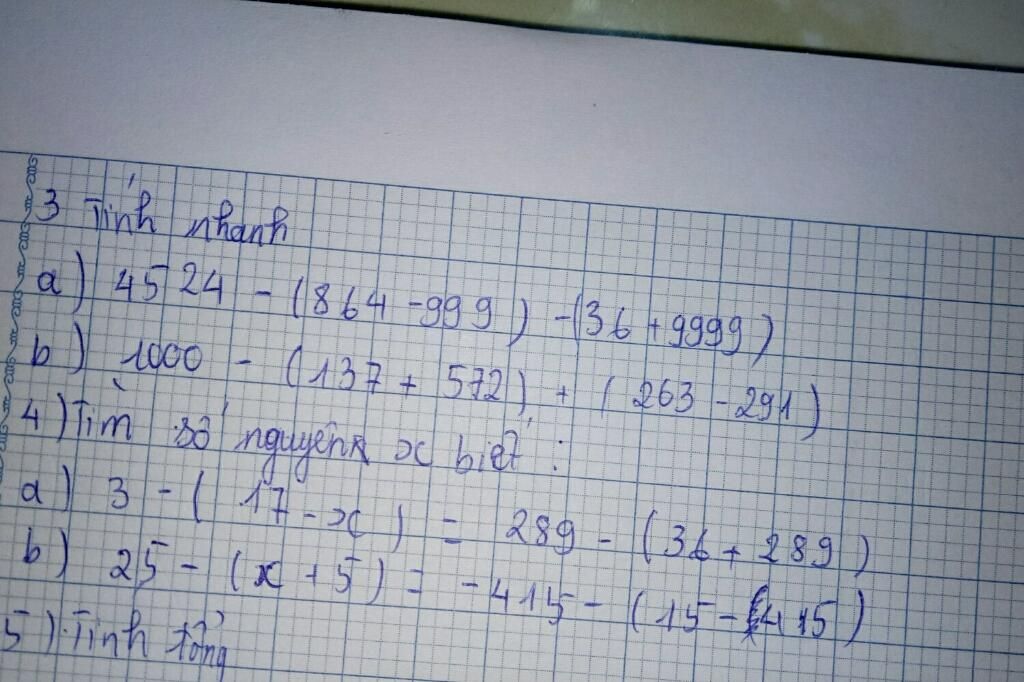 3 Tính nhanh
a) 4524 - (864 - 999) - (36 + 9999)
b) 1000 - (137 + 572) + (263 - 291)
4) Tìm số nguyên x biết :
a) 3 - (17 - x) = 289 - (36 + 289)
b) 25 - (x + 5) = -415 - (15 - 415)
5) Tính tổng